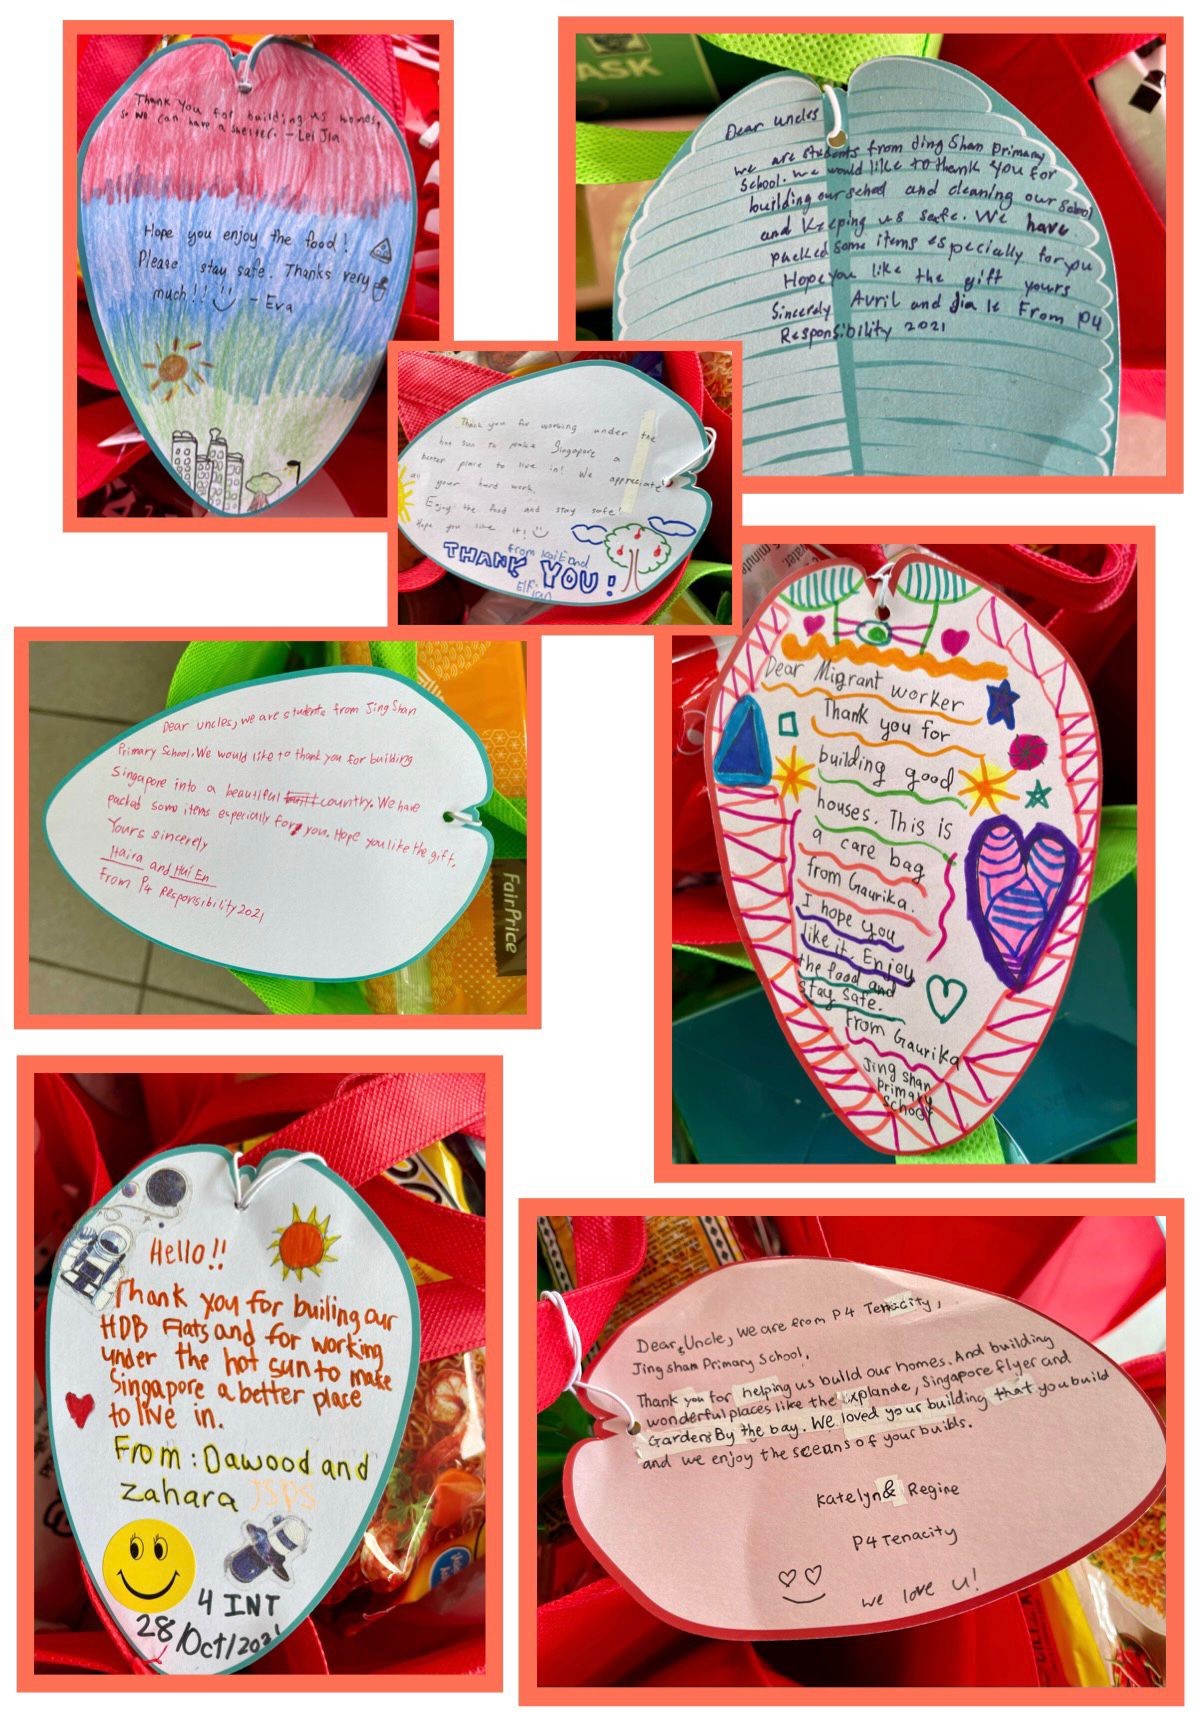 Thank You for building us homes,
so we can have a shelter. - Lei Jia
Hope you enjoy the food!
Please stay safe. Thanks very
much!! - Eva
ASK
Dear uncles
we are students from Jing Shan primary
School. We would like to thank you for
building our school and cleaning our school
and keeping us safe. We have
packed some items especially for you
Hope you like the gift yours
Sincerely Avril and Jia Ie From P4
Responsibility 2021
Thank you for working under the
hot sun to make Singapore a
better place to live in! We appreciate
all your hard work.
Enjoy the food and stay safe!
Hope you like it!
from and
THANK YOU!
Dear uncles, we are students from Jing Shan
Primary School. We would like to thank you for building
Singapore into a beautiful country. We have
packed some items especially for you. Hope you like the gift.
Yours sincerely
Haira and Hui En
From P4 Responsibility 2021
FairPrice
Dear Migrant worker
Thank you for
building good
houses. This is
a care bag
from Gaurika.
I hope you
like it. Enjoy
the food and
stay safe.
From Gaurika
Jing shan
primary
school
Hello!!
Thank you for builing our
HDB Flats and for working
under the hot sun to make
Singapore a better place
to live in.
From: Dawood and
zahara JSPS
4 INT
28/Oct/2021
Dear, Uncle, We are from P4 Tenacity,
Jing shan Primary School.
Thank you for helping us build our homes. And building
wonderful places like the Explande, Singapore flyer and
Gardens By the bay. We loved your building that you build
and we enjoy the sceans of your builds.
Katelyn & Regine
P4 Tenacity
We love u!